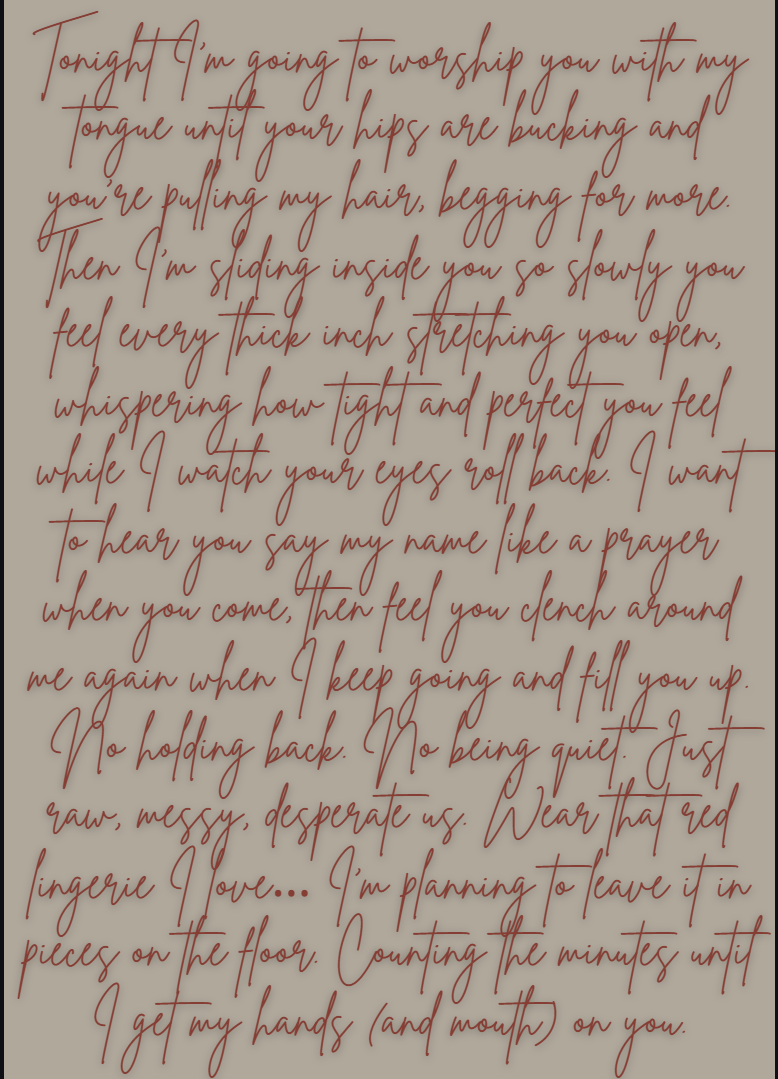 Tonight I'm going to worship you with my
tongue until your hips are bucking and
you're pulling my hair, begging for more.
Then I'm sliding inside you so slowly you
feel every thick inch stretching you open,
whispering how tight and perfect you feel
while I watch your eyes roll back. I want
to hear you say my name like a prayer
when you come, then feel you clench around
me again when I keep going and fill you up.
No holding back. No being quiet. Just
raw, messy, desperate us. Wear that red
lingerie I love... I'm planning to leave it in
pieces on the floor. Counting the minutes until
I get my hands (and mouth) on you.